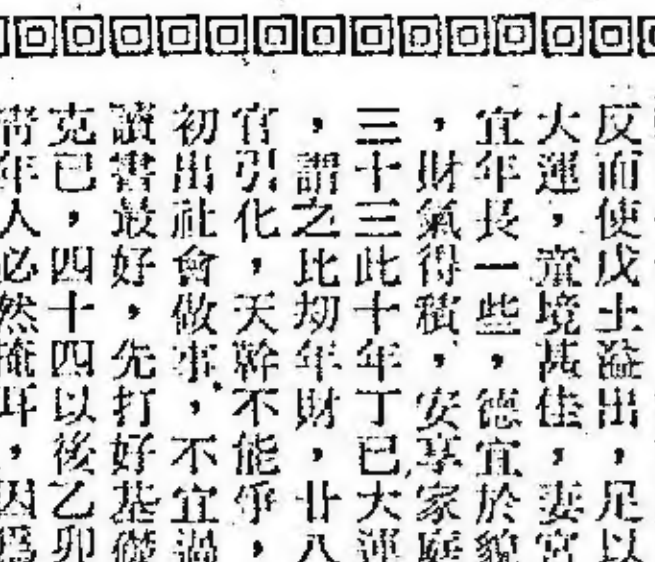 反而使戊土溢出，足以
大運，童境甚佳，妻宮
宜年長一些，德宜於貌
，財氣得積，安享家庭
三十三此十年丁已大運
，謂之比刼年財，廿八
官引化，天幹不能爭，
初出社會，做事，不宜過
讀書最好，先打好基礎
克已，四十四以後乙卯
年人必然掩耳，因爲